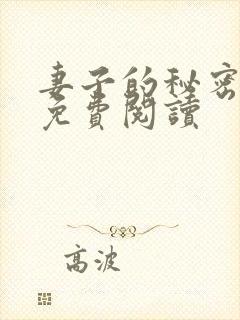 妻子的秘密
免費閱讀
高波